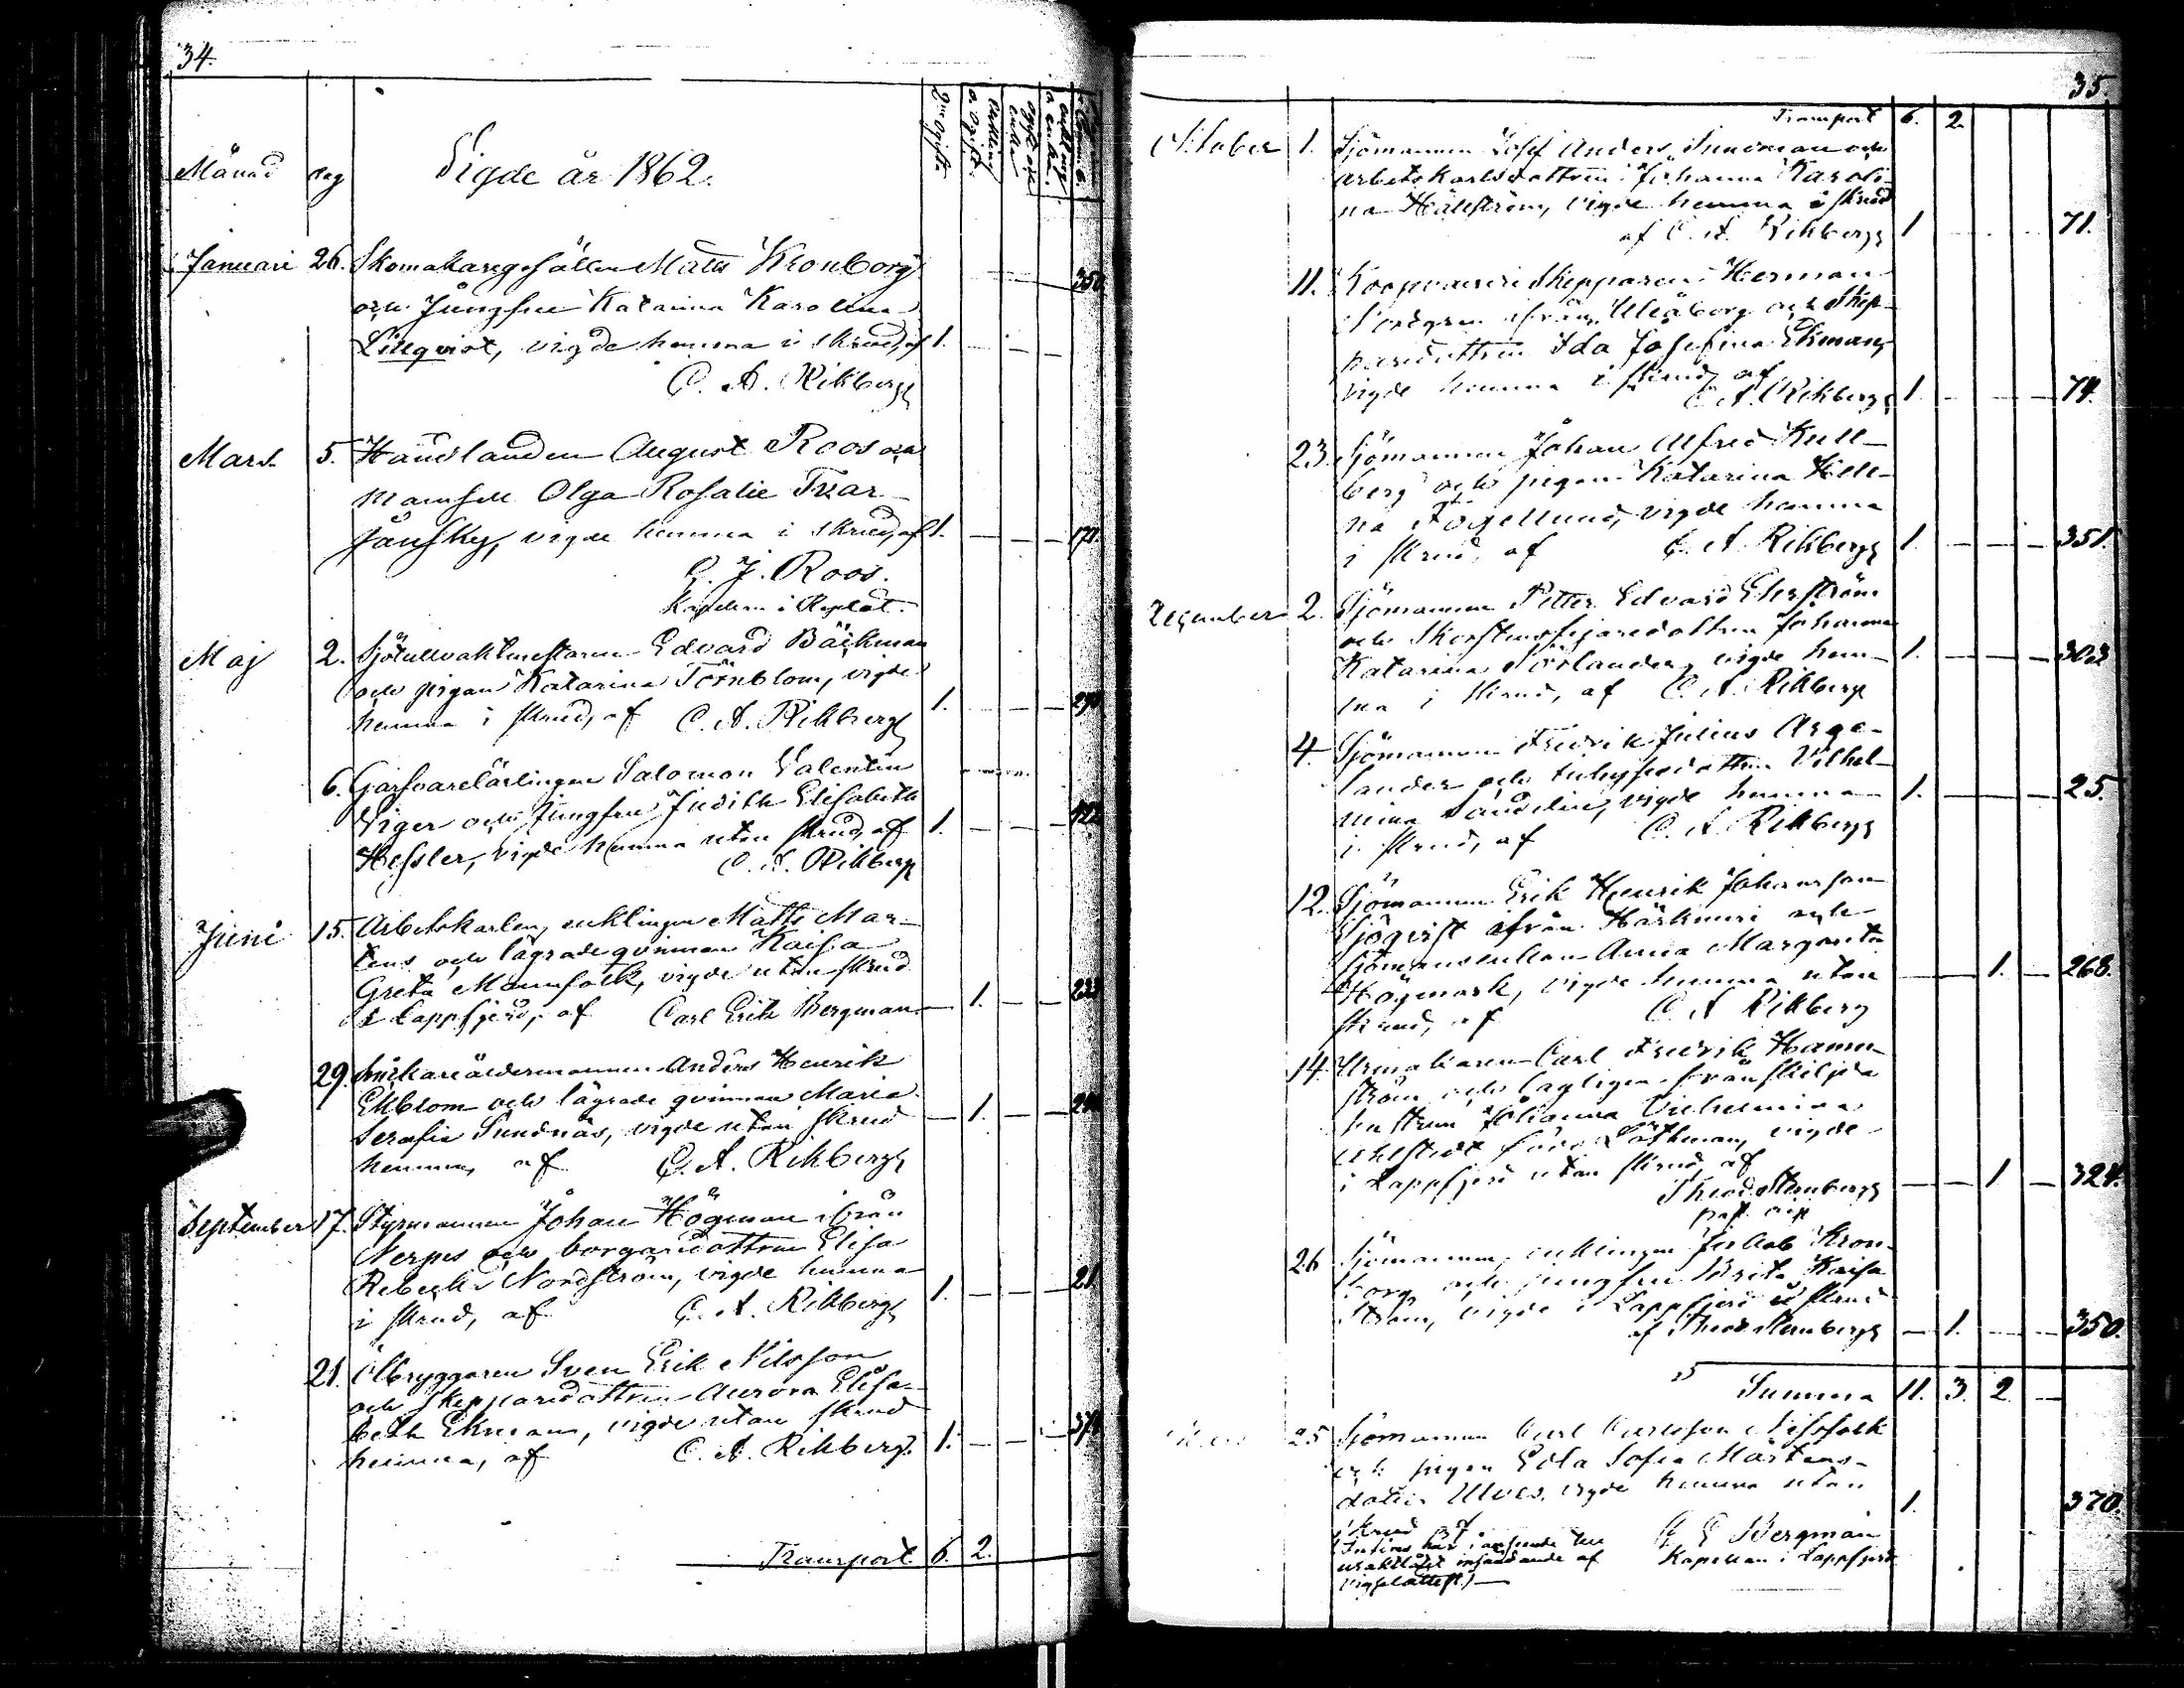 34.
Månad dag Vigde år 1862.
Januari 26. Skomakaregesällen Matts Kronborg 350
och Jungfru Katarina Karolina
Lillqvist, vigde hemma i skrud, af 1.
C. A. Rikberg
Mars 5. Handlanden August Roos och
Mamsell Olga Rosalie Tvar-
jånsky, vigde hemma i skrud, af 1.
G. J. Roos.
Kapellan i Replot.
Maj 2. Sjötullvaktmestaren Edvard Bäckman
och pigan Katarina Törnblom, vigde
hemma i skrud, af C. A. Rikberg 1.
6. Garfvarelärlingen Salomon Valentin
Viger och Jungfru Judith Elisabeth
Hessler, vigde hemma utan skrud, af 1. 122
C. A. Rikberg
Juni 15. Arbetskarlen, enklingen Matts Mar-
tens och lägrade qvinnan Kaisa
Greta Mannfolk, vigde utan skrud
i Lappfjerd, af Carl Erik Bergman 1. 233
29. åldermannen Anders Henrik
Ekblom och lägrade qvinnan Maria
Serafia Sundnäs, vigde utan skrud 1.
hemma, af C. A. Rikberg
September 17. Styrmannen Johan Högman ifrån
Nerpes och borgaredottren Elisa
Rebecka Nordström, vigde hemma 21.
i skrud, af C. A. Rikberg 1.
21. Ölbryggaren Sven Erik Nilsson
och Skepparedottren Aurora Elisa-
beth Ekman, vigde utan skrud
hemma, af C. A. Rikberg. 1.
Transport 6. 2.
35.
Transport 6. 2.
October 1. Sjömannen Josef Anders Sundman och
arbetskarlsdottren Johanna Karoli-
na Hällström, vigde hemma i skrud
af C. A. Rikberg 1 71.
11. Koopvaerdi Skepparen Herman
Nordgren ifrån Uleåborg och Skep-
paredottren Ida Josefina Ekman,
vigde hemma i skrud af
C. A. Rikberg 1. 74.
23. Sjömannen Johan Alfred Kull-
berg och pigan Katarina Hele-
na Fogellund, vigde hemma
i skrud, af C. A. Rikberg 1. 351.
December 2. Sjömannen Petter Edvard Ehrström
och Skorstensfejaredottren Johanna
Katarina Sörlander, vigde hem- 1. 303
ma i skrud, af C. A. Rikberg
4. Sjömannen Fredrik Julius Arge-
lander och Vilhel-
mina Sandelin, vigde hemma 1. 25.
i skrud, af C. A. Rikberg
12. Sjömannen Erik Henrik Johansson
Sjöqvist ifrån Härkmeri och
Sjömansenkan Anna Margareta
Högmark, vigde hemma utan 1. 268.
skrud, af C. A. Rikberg
14. Urmakaren Carl Fredrik Hamm-
ström och lagligen frånskiljda
hustrun Johanna Vilhelmina
född Löthman, vigde
i Lappfjerd utan skrud, af
Theod. Stenberg 1 324.
26 Sjömannen, enklingen Jakob Kron-
borg och jungfru Brita Kaisa
Ström, vigde i Lappfjerd i skrud
af Theod. Stenberg 1. 350.
Summa 11. 3. 2
25 Sjömannen Carl Carlsson Nissfolk
och pigan Edla Sofia Mårtens-
dotter Ulves, vigde hemma utan
skrud af 1. 370.
(Införes här i anseende till C E Bergman
uraktlåtet insändande af Kapellan i Lappfjerd
vigselattest.)